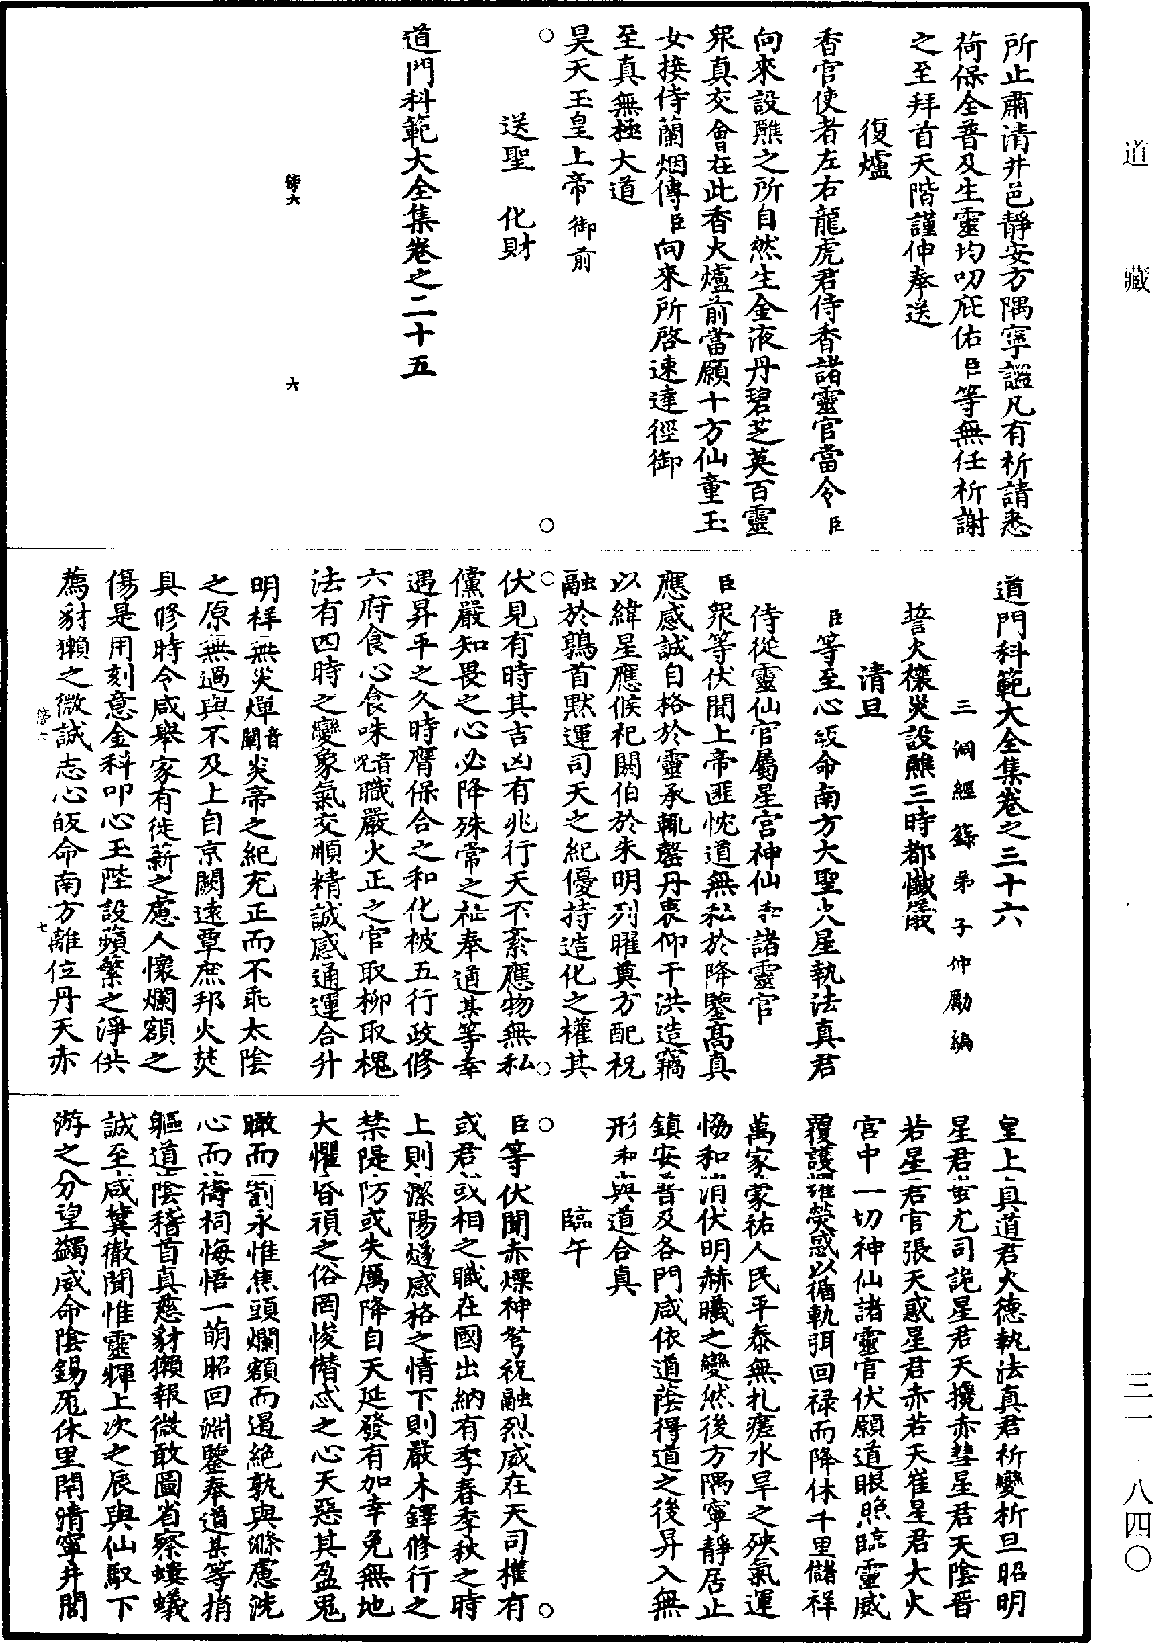 道藏
三一　八四〇
所止肅清井邑靜安方隅寧謐凡有祈請悉
荷保全普及生靈均叨庇佑臣等無任祈謝
之至拜首天階謹伸奉送
復爐
香官使者左右龍虎君侍香諸靈官當令臣
向來設醮之所自然生金液丹碧芝英百靈
眾真交會在此香火爐前當願十方仙童玉
女接侍蘭烟傳臣向來所啓速達徑御
至真無極大道
昊天玉皇上帝御前
○　○
送聖　化財
道門科範大全集卷之二十五
六
道門科範大全集卷之三十六
三洞經籙弟子仲勵編
誓火禳災設醮三時都懺儀
清旦
臣等至心皈命南方大聖火星執法真君
侍從靈仙官屬星宮神仙和諸靈官
臣眾等伏聞上帝匪忱道無私於降鑒高真
應感誠自格於靈承輒罄丹衷仰干洪造竊
以緯星應候祀閼伯於朱明列曜奠方配祝
融於鶉首默運司天之紀優持造化之權其
○　○
伏見有時其吉凶有兆行天不紊應物無私
儻嚴知畏之心必降殊常之祉奉道某等幸
遇昇平之久時膺保合之和化被五行政修
六府食心食咮音咒職嚴火正之官取柳取槐
法有四時之變象氣交順精誠感通運合升
明祥無災燀音闡炎帝之紀充正而不乖太陰
之原無過與不及上自京闕遠覃庶邦火焚
具修時令咸舉家有徙薪之慮人懷爛額之
傷是用刻意金科叩心玉陛設蘋繁之淨供
薦豺獺之微誠志心皈命南方離位丹天赤
七
皇上真道君火德執法真君祈變祈旦昭明
星君蚩尤司詭星君天攙赤彗星君天陰晉
若星君官張天惑星君赤若天雀星君大火
宮中一切神仙諸靈官伏願道眼照臨靈威
覆護俾熒惑以循軌弭回祿而降休千里儲祥
萬家蒙祐人民平泰無札瘥水旱之殃氣運
恊和消伏明赫曦之變然後方隅寧靜居止
鎮安普及各門咸依道蔭得道之後昇入無
形和與道合真
臨午
○　○
臣等伏聞赤熛神弩祝融烈威在天司權有
或君或相之職在國出納有季春季秋之時
上則濠陽燧感格之情下則嚴木鐸修行之
禁隄防或失厲降自天延發有加幸免無地
大懼昏禎之俗罔悛僭忒之心天惡其盈鬼
瞰而罰永惟焦頭爛額而遏絶孰與滌慮洗
心而禱祠悔悟一萌昭回淵鑒奉道某等捎
軀道陰稽首真慈豺獺報微敢圖省察螻蟻
誠至咸冀徹聞惟靈輝上次之辰與仙馭下
游之分望蠲威命陰錫厖休里閈清寧井閭